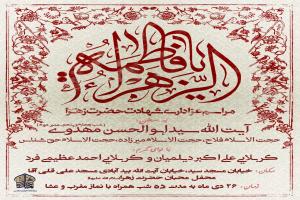 یا فاطمة الزهرا
مراسم عزاداری شهادت حضرت زهرا
آیت الله سید ابوالحسن مهدوی
حجت الاسلام فلاح، حجت الاسلام میرزاده، حجت الاسلام حق شناس
کربلایی علی اکبر دیلمیان و کربلایی احمد عظیمی فرد
مکان: خیابان مسجد سید، خیابان آیت الله بیدآبادی مسجد علی قلی آقا
محفل محبان حضرت زهرا
زمان: ۲۶ دی ماه به مدت ۵ شب همراه با نماز مغرب و عشا